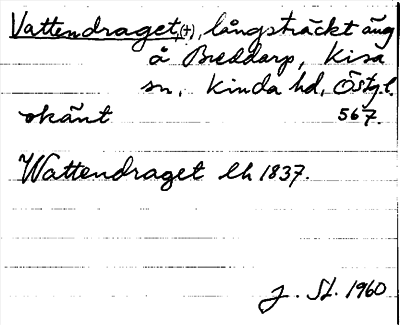 Vattendraget,(+), långsträckt äng
å Breddarp, Kisa
sn, Kinda hd, Östg.l.
okänt 567.
Wattendraget lh 1837.
J. St. 1960